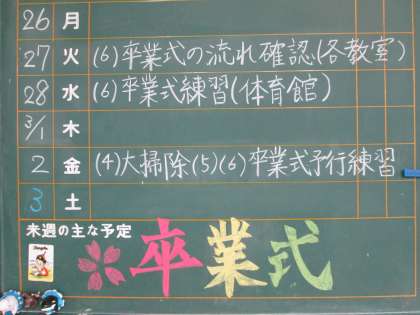 26 月
27 火 (6)卒業式の流れ確認(各教室)
28 水 (6)卒業式練習(体育館)
3/1 木
2 金 (4)大掃除(5)(6)卒業式予行練習
3 土
来週の主な予定
卒業式